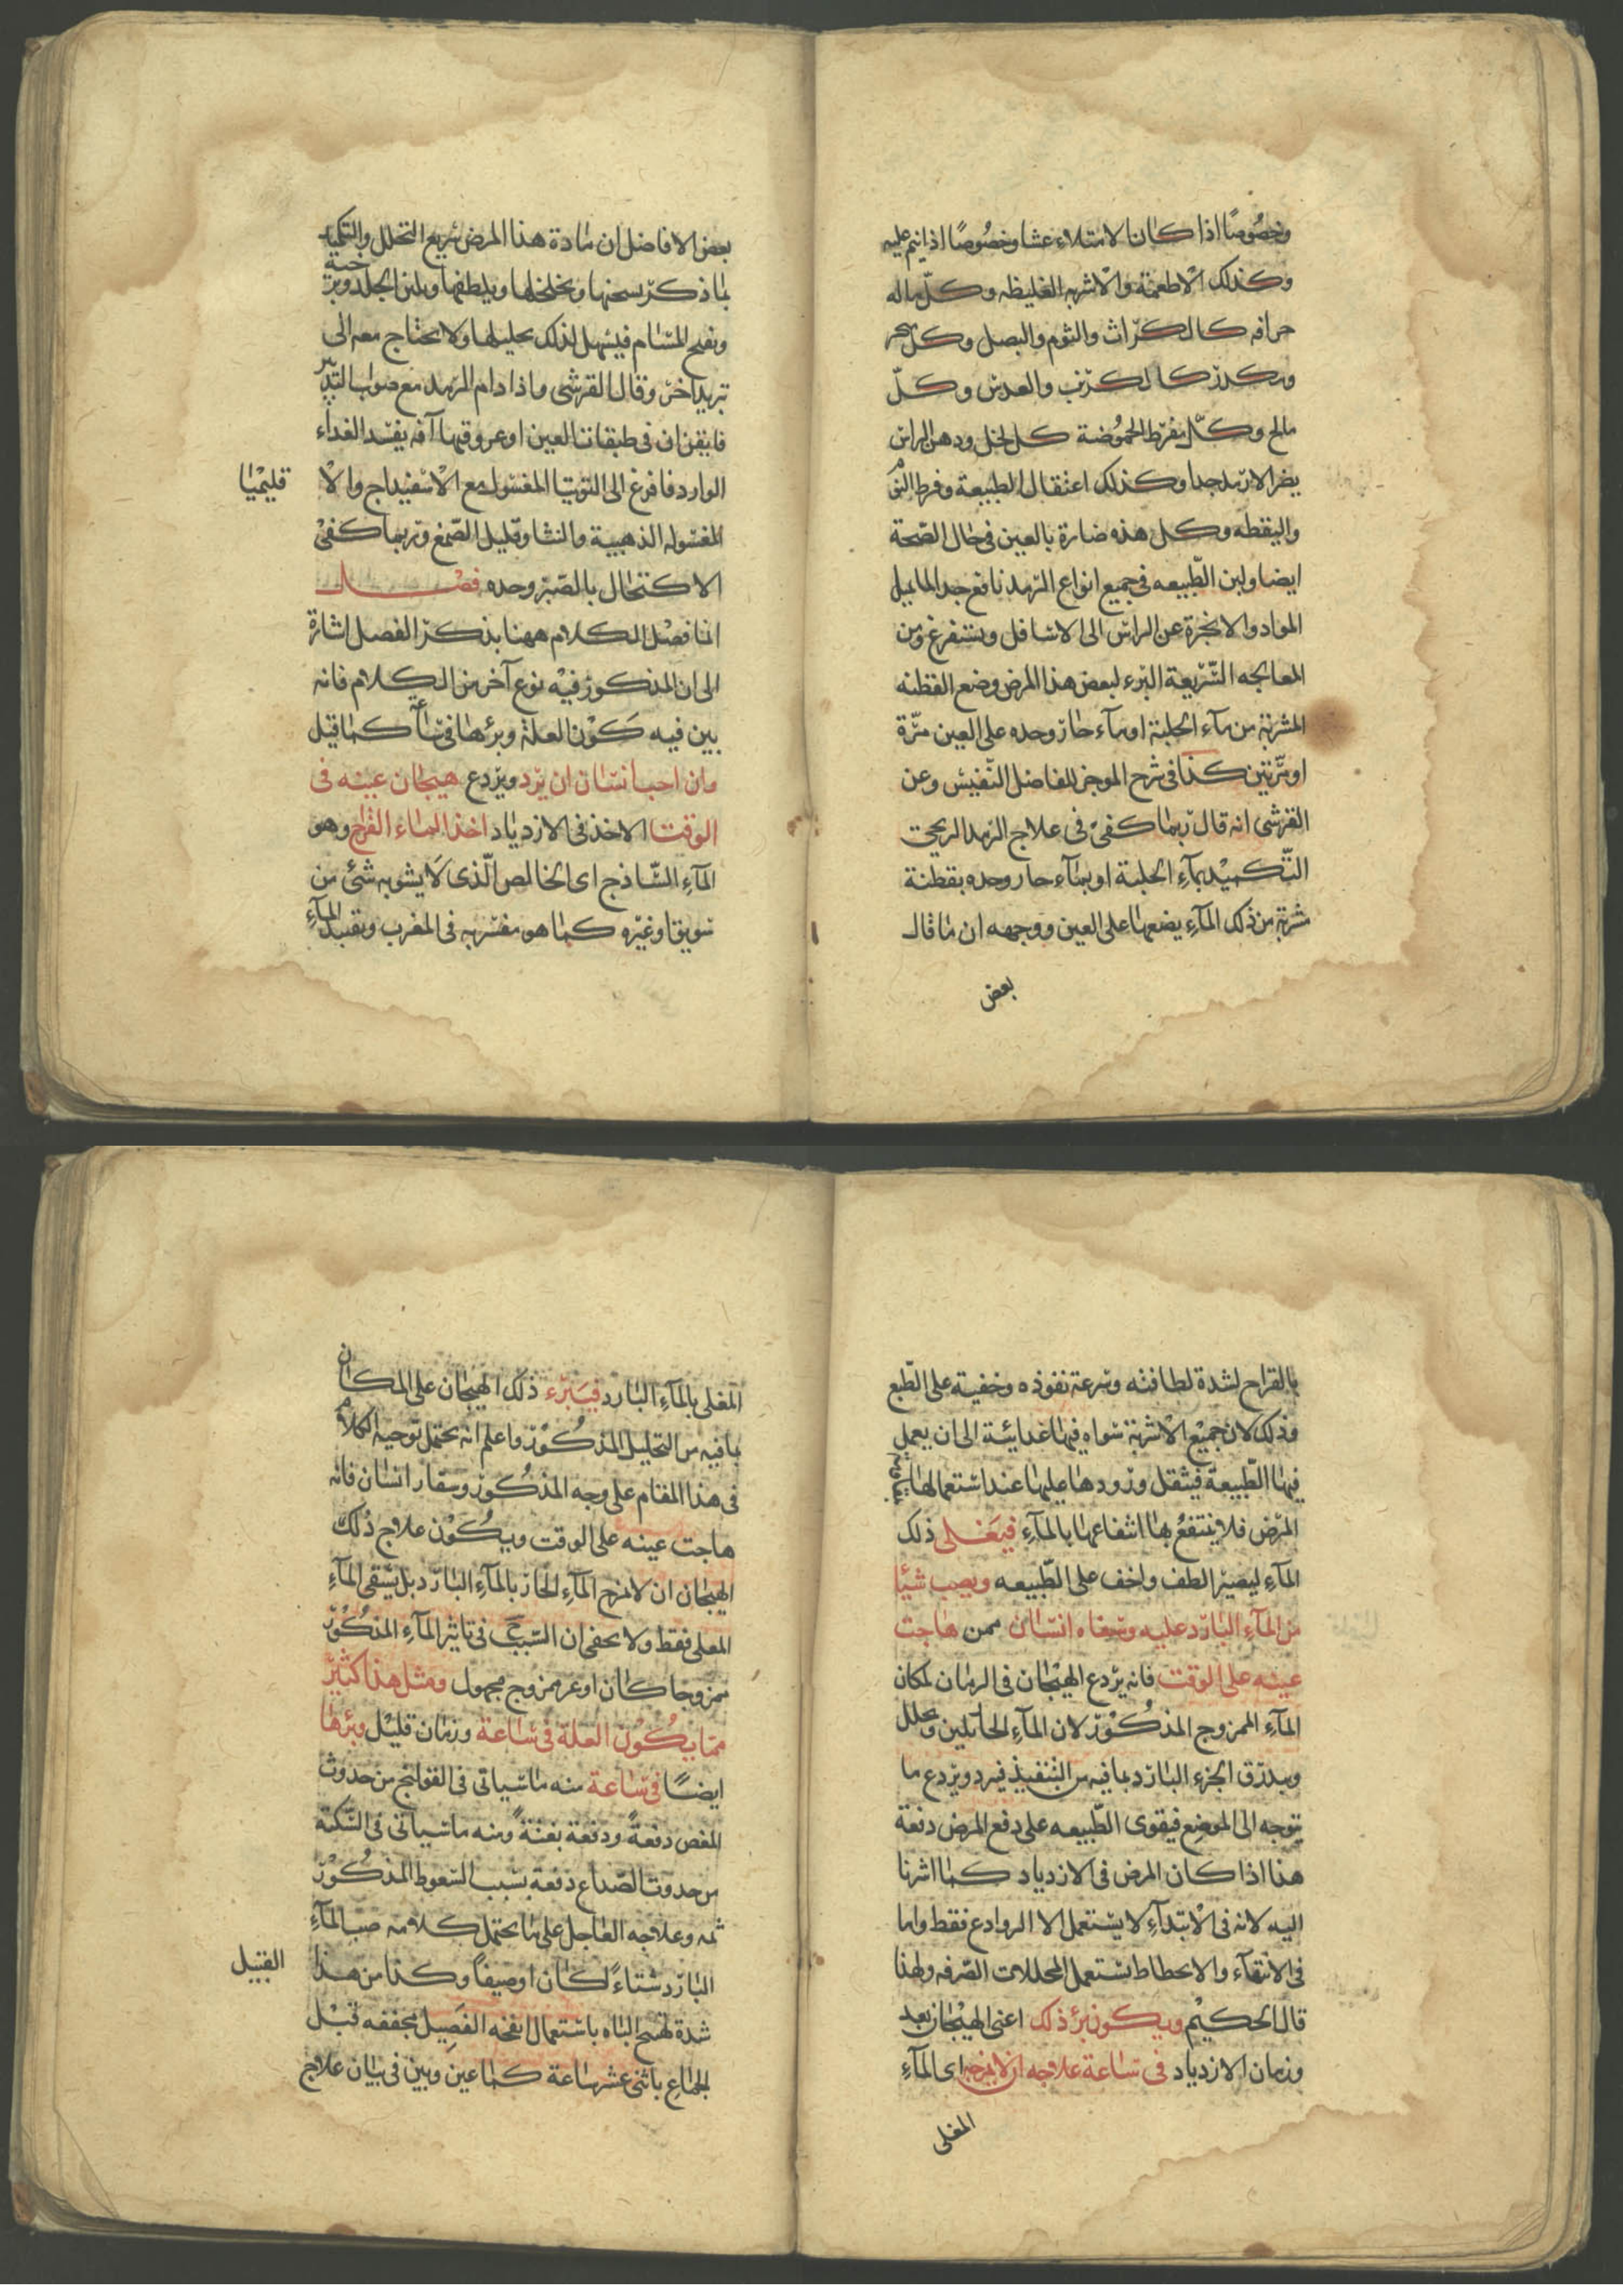 وخصوصًا اذا كان الامتلاء عشا وخصوصًا اذا نيم عليه
وكذلك الاطعمة والاشربه الغليظه وكل ماله
حرافه كالكراث والثوم والبصل وكل مبخر
ومكدر كالكرنب والعدس وكل
مالح وكل مفرط الحموضة كالخل ودهن الراس
يضر الارمد جدا وكذلك اعتقال الطبيعة وفرط النوم
واليقظه وكل هذه ضارة بالعين فى حال الصحة
ايضا ولين الطبيعه فى جميع انواع الرمد نافع جدا لما يميل
المواد والابخرة عن الراس الى الاسافل ويستفرغ ومن
المعالجه السريعة البرء لبعض هذا المرض وضع القطنه
المشربة من ماء الحلبة او ماء حار وحده على العين مرة
او مرتين كذا فى شرح الموجز للفاضل النفيس وعن
القرشى انه قال ربما كفى فى علاج الرمد الريحى
التكميد بمآء الحلبة او بمآء حار وحده بقطنة
مشربة من ذلك المآء يضعها على العين ووجهه ان ما قال
بعض
بعض الافاضل ان مادة هذا المرض سريع التحلل والتكميد
بما ذكر يسخنها ويخلخلها ويلطفها ويلين الجلد ويرخيه
ويفتح المسام فيسهل لذلك تحليلها ولا يحتاج معه الى
تدبير اخر وقال القرشى واذا دام الرمد مع صواب التدبير
فايقن ان فى طبقات العين او عروقها آفه يفسد الغذاء
الوارد فافرغ الى التوتيا المغسول مع الاسفيداج والا
قليميا
المغسوله الذهبية والنشا وقليل الصمغ وربما كفى
الاكتحال بالصبر وحده فصل
انما فصل الكلام ههنا بذكر الفصل اشارة
الى ان المذكور فيه نوع آخر من الكلام فانه
بين فيه كون العلة وبرؤها فى ساعة كما قيل
وان احب انسان ان يرد ويردع هيجان عينه فى
الوقت الاخذ فى الازدياد اخذ الماء القراح وهو
المآء الساذج اى الخالص الذى لا يشوبه شئ من
سويق او غيره كما هو مفسر به فى المغرب وتقييد المآء
بالقراح لشدة لطافته وسرعة نفوذه وخفيته على الطبع
وذلك لان جميع الاشربة سواه فيها غدائية الى ان يعمل
فيها الطبيعة فيثقل ورودها عليها عند استعمالها
المرض فلا ينتفع بها انتفاعها بالمآء فيغلى ذلك
المآء ليصير الطف واخف على الطبيعه ويصب شيئا
من المآء البارد عليه وسقاه انسان ممن هاجت
عينه على الوقت فانه يردع الهيجان فى الزمان لمكان
المآء الممزوج المذكور لان المآء الحار يلين ويحلل
ويبذرق الجزء البارد بما فيه من التنفيذ فيرد ويردع ما
يتوجه الى الموضع فيقوى الطبيعه على دفع المرض دفعة
هذا اذا كان المرض فى الازدياد كما اشرنا
اليه لانه فى الابتدآء لا يستعمل الا الروادع فقط واما
فى الانتهآء والانحطاط يستعمل المحللات الصرفه ولهذا
قال الحكيم ويكون برؤ ذلك اعنى الهيجان بعد
وزمان الازدياد فى ساعة علاجه ان لا يمزجه اى المآء
المغلى
المغلى بالمآء البارد فيبرء ذلك الهيجان على المكان
بما فيه من التحليل المذكور واعلم انه يحتمل توجيه الكلام
فى هذا المقام على وجه المذكور وسقا انسان فانه
هاجت عينه على الوقت ويكون علاج ذلك
الهيجان ان لا يمزج المآء الحار بالمآء البارد بل يسقى المآء
المغلى فقط ولا يخفى ان السبب فى تاثير المآء المذكور
ممزوجا كان او غير ممزوج مجهول ومثل هذا كثير
مما يكون العلة فى ساعة وزمان قليل وبرؤها
ايضًا فى ساعة منه ما سياتى فى القولنج من حدوث
المغص دفعةً ودفعة بغتةً ومنه ما سياتى فى السكتة
من حدوث الصداع دفعة بسبب السعوط المذكور
ثمه وعلاجه العاجل على ما يحتمل كلامه صب المآء
البارد شتاءً كان او صيفاً وكذا من هذا
القبيل
شدة تهييج الباه باستعمال انفخه الفصيل مجففه قبل
الجماع باثنى عشر ساعة كما عين وبين فى بيان علاج